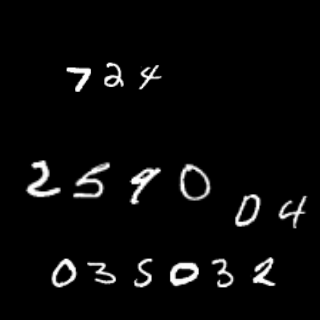 724
2590
04
035032